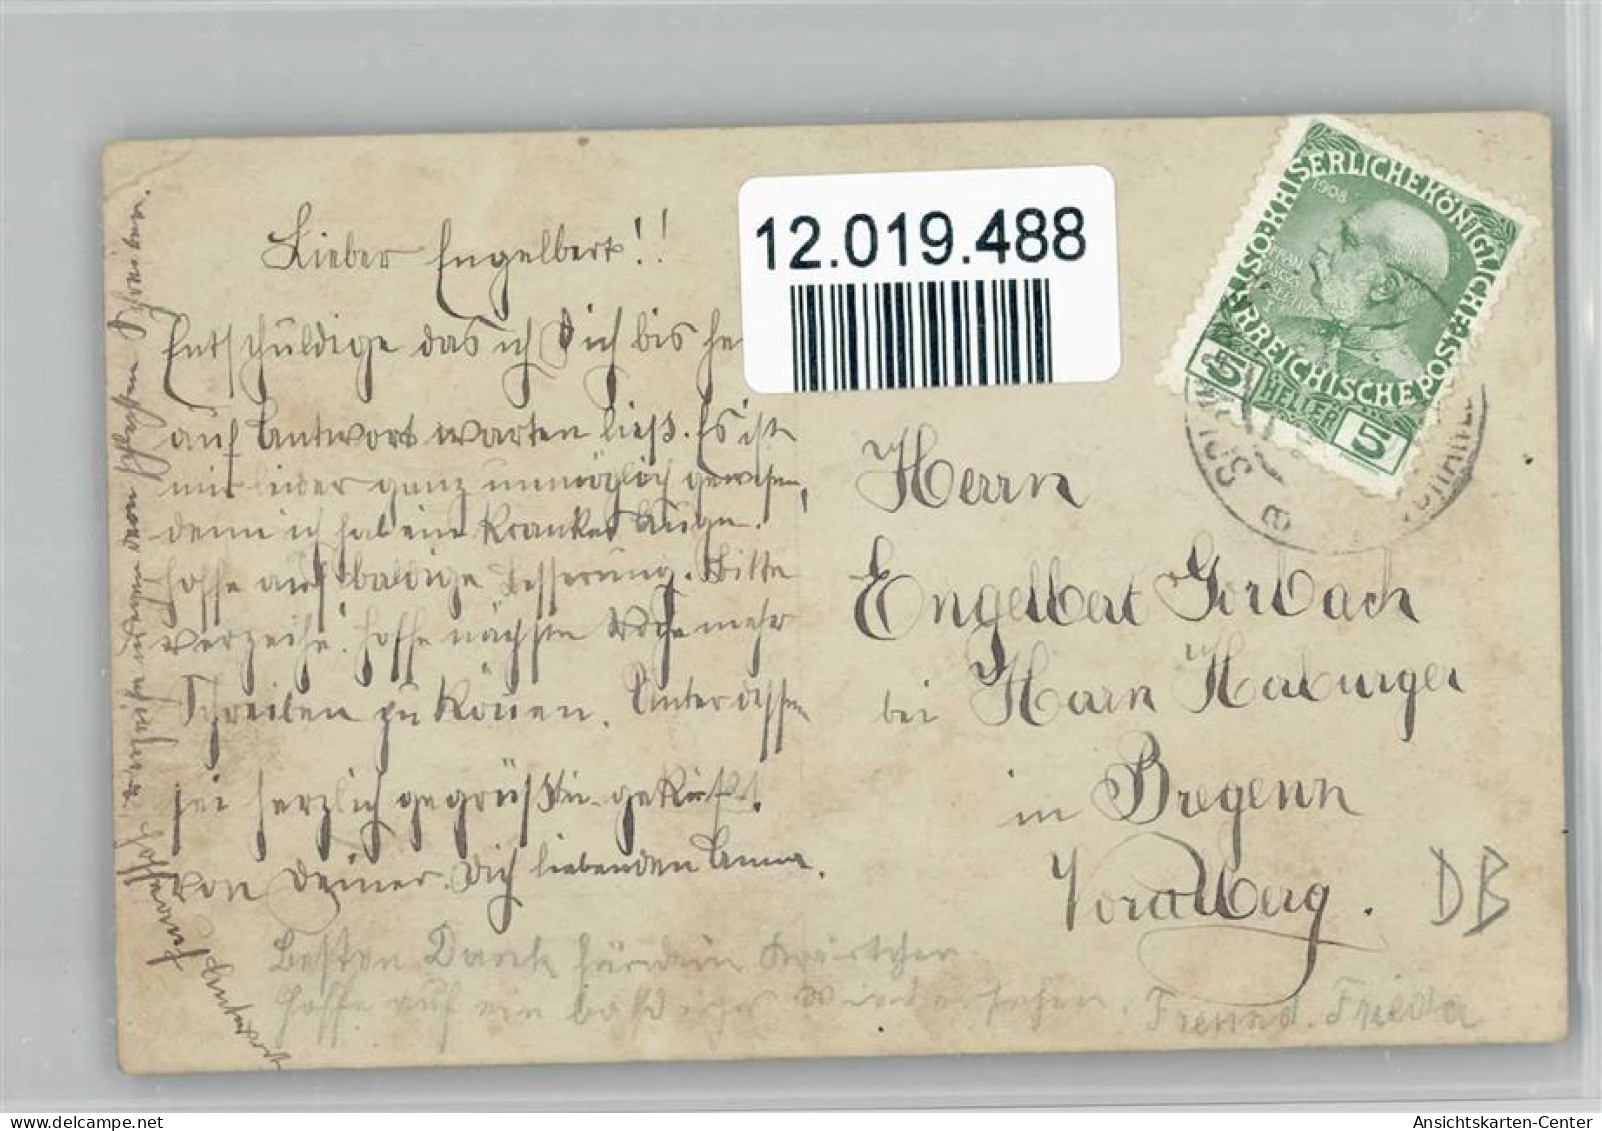 12.019.488
KAISERLICHE KÖNIGLICHE ÖSTERREICHISCHE POST
1908
5 HELLER 5
Lieber Engelbert!!
Entschuldige das ich Dich bis he
auf Antwort warten ließ. Es ist
mir leider ganz unmöglich gewesen,
denn ich hab ein Krankes Auge.
Hoffe auf baldige Besserung. Bitte
verzeihe. Hoffe nächste Woche mehr
Schreiben zu Können. Unterdessen
sei herzlich gegrüßt u. geküßt.
von Deiner Dich liebenden Anna.
Hoffe auf Antwort
Besten Dank für dein Kärtchen
Hoffe auf ein baldiges Wiedersehen. Freund. Frieda
Herrn
Engelbert Gorbach
bei Harn Haburger
in Bregenn
Vorarlberg.
DB
Ansichtskarten-Center